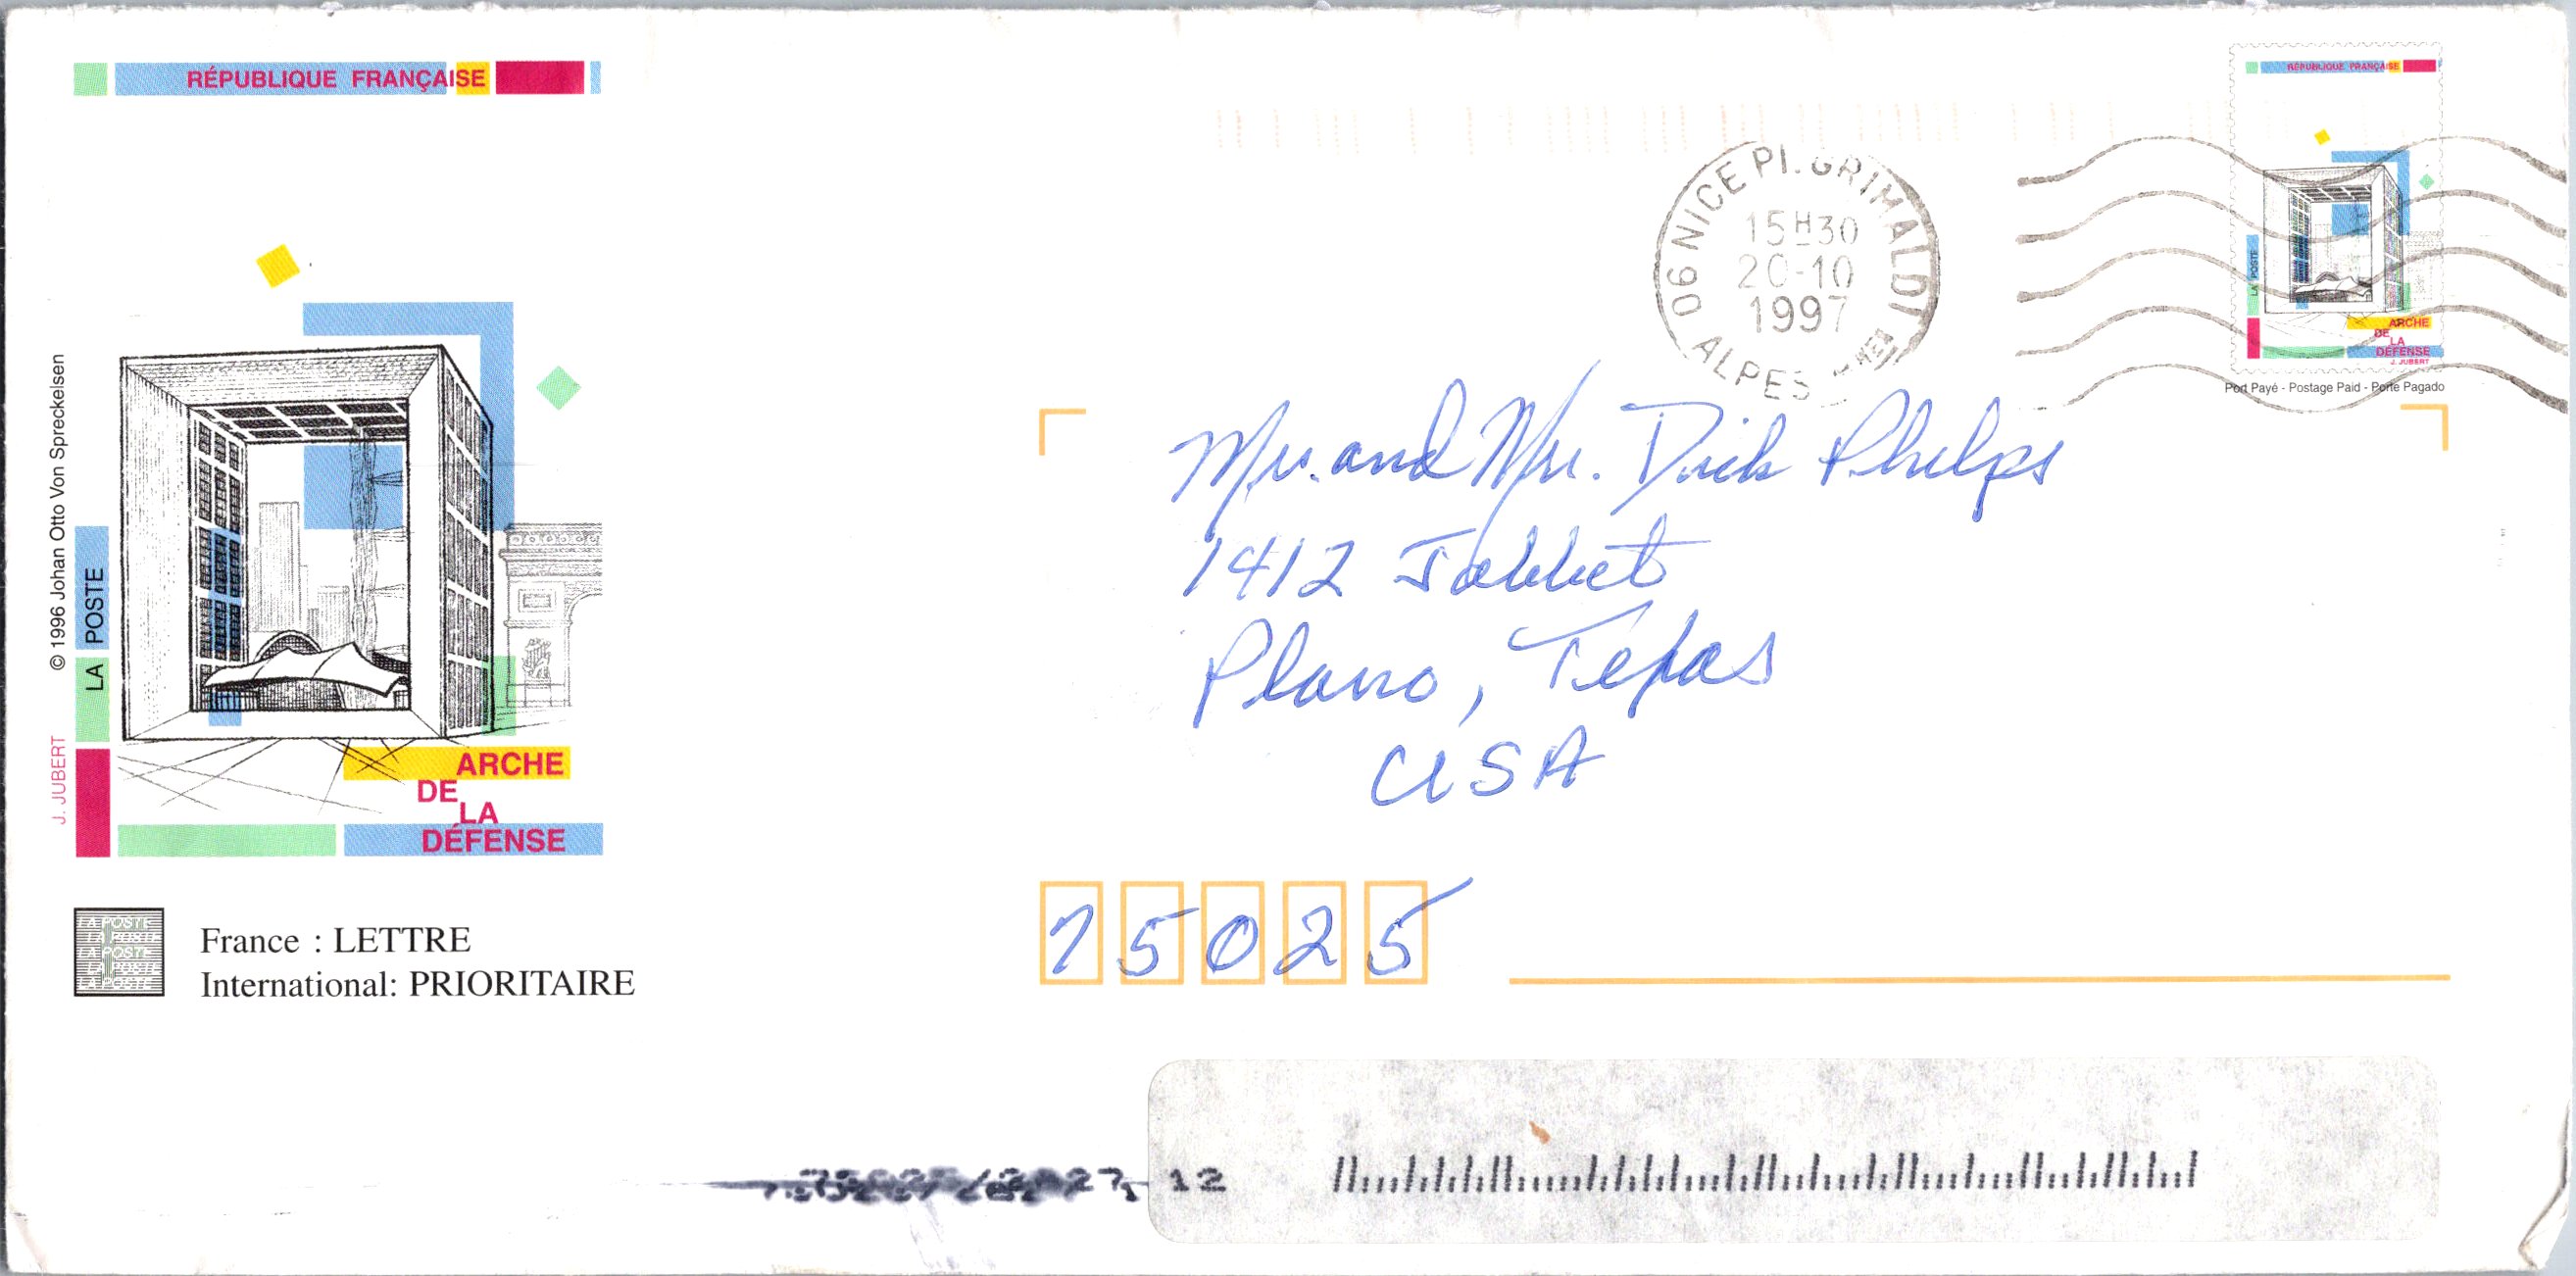 RÉPUBLIQUE FRANÇAISE
© 1996 Johan Otto Von Spreckelsen
J. JUBERT
LA POSTE
ARCHE
DE
LA
DÉFENSE
France : LETTRE
International: PRIORITAIRE
06 NICE PL. GRIMALDI
15H30
20-10
1997
ALPES
RÉPUBLIQUE FRANÇAISE
LA POSTE
ARCHE
DE
LA
DÉFENSE
J. JUBERT
Port Payé - Postage Paid - Porte Pagado
Mr. and Mrs. Dick Phelps
1412
Plano, Texas
USA
75025
12